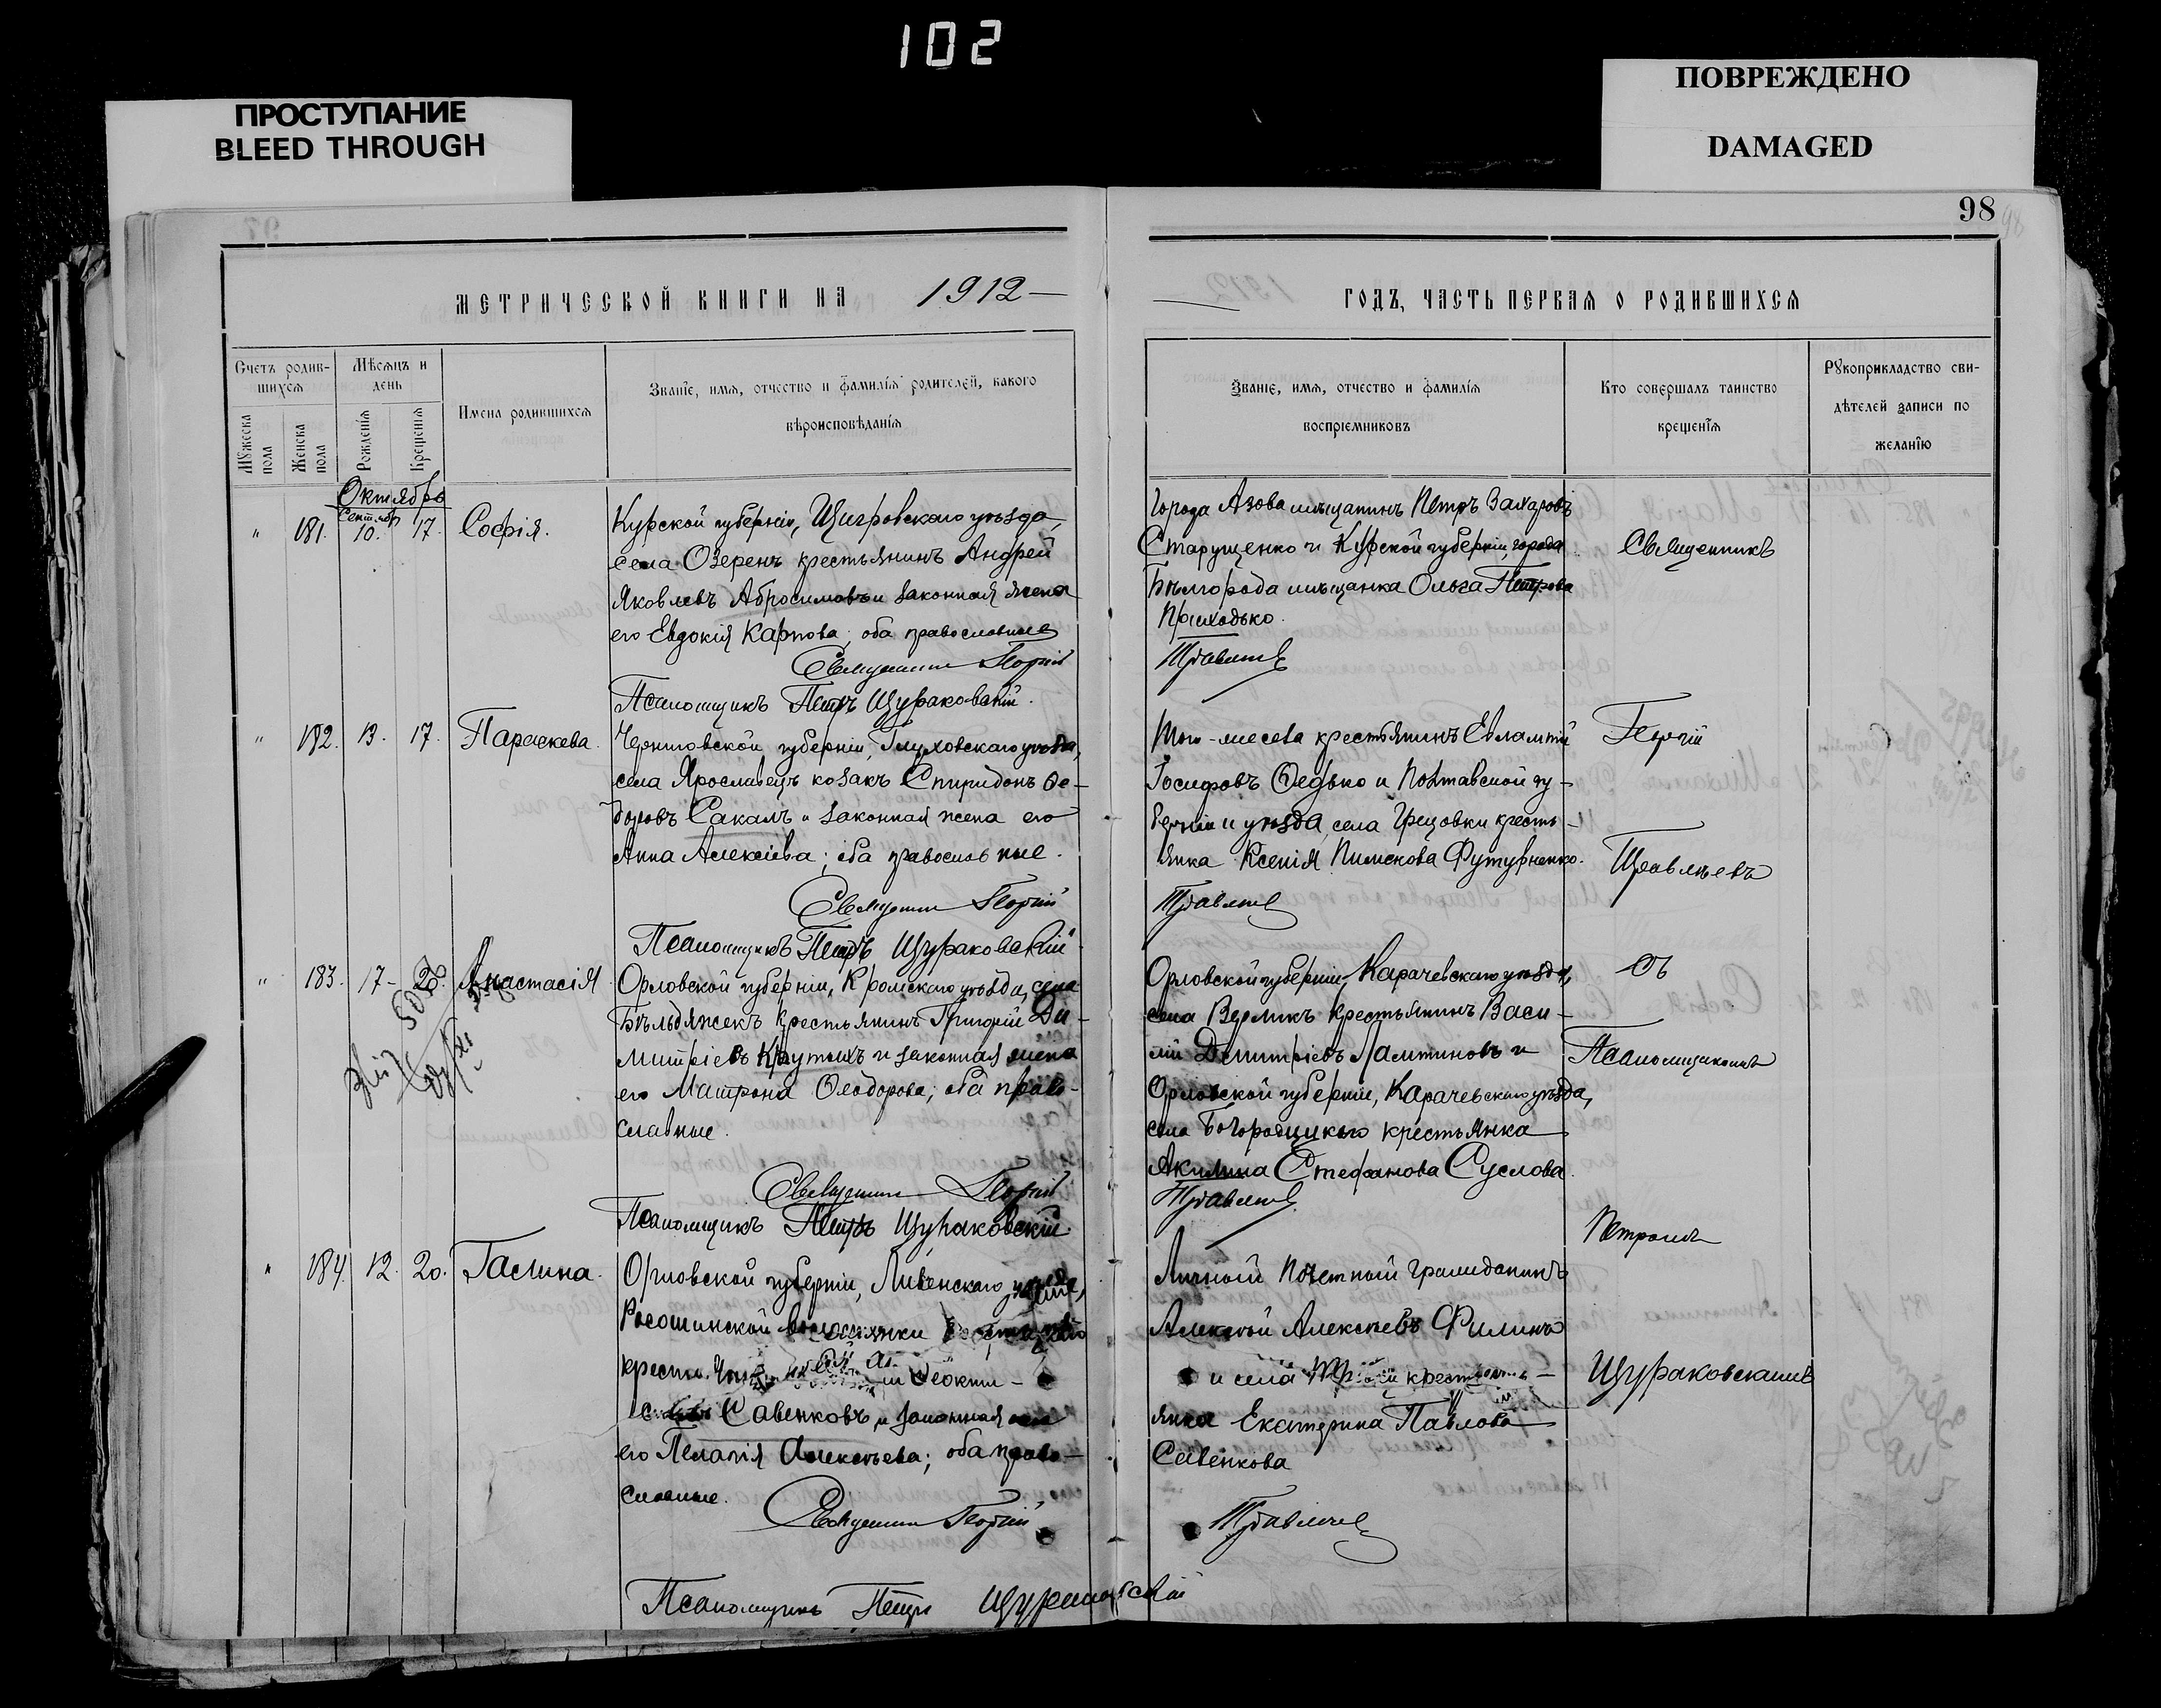 102
ПРОСТУПАНИЕ
BLEED THROUGH
ПОВРЕЖДЕНО
DAMAGED
98
МЕТРИЧЕСКОЙ КНИГИ НА 1912
ГОДЪ, ЧАСТЬ ПЕРВАЯ О РОДИВШИХСЯ
Счетъ родив-
шихся
Мужеска пола
Женска пола
Мѣсяцъ и
день
Рожденія
Крещенія
Имена родившихся
Званіе, имя, отчество и фамилія родителей, какого
вѣроисповѣданія
Званіе, имя, отчество и фамилія
воспріемниковъ
Кто совершалъ таинство
крещенія
Рукоприкладство сви-
дѣтелей записи по
желанію
Октябрь
Сент.
" 181. 10. 17. Софія.
Курской губерніи, Щигровскаго уѣзда,
села Озеренъ крестьянинъ Андрей
Яковлевъ Абросимовъ и законная жена
его Евдокія Карпова; оба православные
Священникъ Георгій
Псаломщикъ Петръ Щураковскій.
Города Азова мѣщанинъ Петръ Захаровъ
Старущенко и Курской губерніи, города
Бѣлгорода мѣщанка Ольга Петрова
Приходько.
Травлѣевъ
Священникъ
" 182. 13. 17. Параскева.
Черниговской губерніи, Глуховскаго уѣзда,
села Ярославецъ козакъ Спиридонъ Ѳе-
доровъ Сакалъ и законная жена его
Анна Алексіева; оба православные.
Священникъ Георгій
Псаломщикъ Петръ Щураковскій
Того-же села крестьянинъ Евлампій
Іосифовъ Ѳедько и Полтавской гу-
берніи и уѣзда, села крестъ-
янка Ксенія
Травлѣевъ
Георгій
Травлѣевъ
" 183. 17. 20. Анастасія
Орловской губерніи, Кромскаго уѣзда, села
крестьянинъ Григорій Ди-
митріевъ и законная жена
его Матрона Ѳеодорова; оба право-
славные.
Священникъ Георгій
Псаломщикъ Петръ Щураковскій
Орловской губерніи, Карачевскаго уѣзда,
села крестьянинъ Васи-
лій Димитріевъ и
Орловской губерніи, Карачевскаго уѣзда,
села Богородицкаго крестьянка
Акилина Стефанова Суслова.
Травлѣевъ
съ
Псаломщикомъ
Петромъ
" 184. 12. 20. Галина.
Орловской губерніи, Ливенскаго уѣзда,
Росошинской
крест.
Савенковъ и законная жена
его Пелагія Алексѣева; оба право-
славные.
Священникъ Георгій
Псаломщикъ Петръ Щураковскій
Личный почетный гражданинъ
Алексѣй Алексѣевъ Филинъ
и села крестьянка
Екатерина Павлова
Савенкова
Травлѣевъ
Щураковскимъ